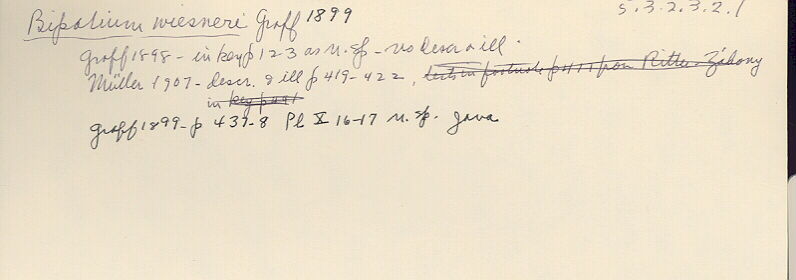 5.3.2.3.2.1
Bipalium wiesneri Graff 1899
Graff 1898 - in key p 123 as n. sp - no descr & ill.
Müller 1907 - descr. & ill p 419-422, Ritter-Záhony
in key p 491
Graff 1899 - p 437-8 Pl X 16-17 n. sp. Java